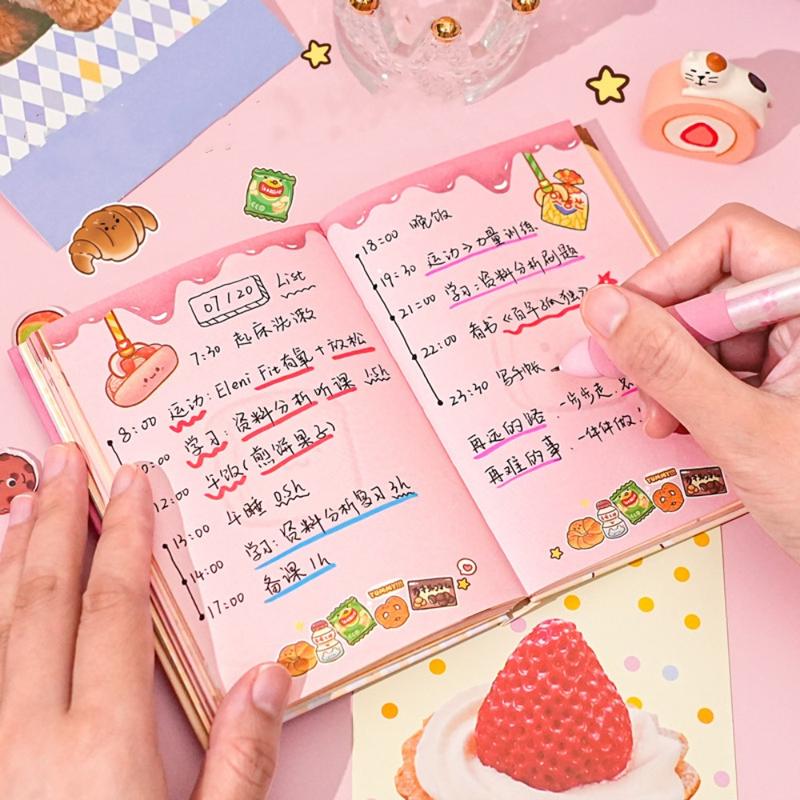 07/20 List
7:30 起床洗漱
8:00 运动: Eleni Fit有氧+放松
学习: 资料分析听课 1.5h
12:00 午饭(煎饼果子)
13:00 午睡 0.5h
14:00 学习: 资料分析复习3h
17:00 备课1h
YUMMY!!!
18:00 晚饭
19:30 运动>力量训练
21:00 学习: 资料分析刷题
22:00 看书《百年孤独》
23:30 写手帐
再远的路 一步步走,
再难的事 一件件做!
YUMMY!!!